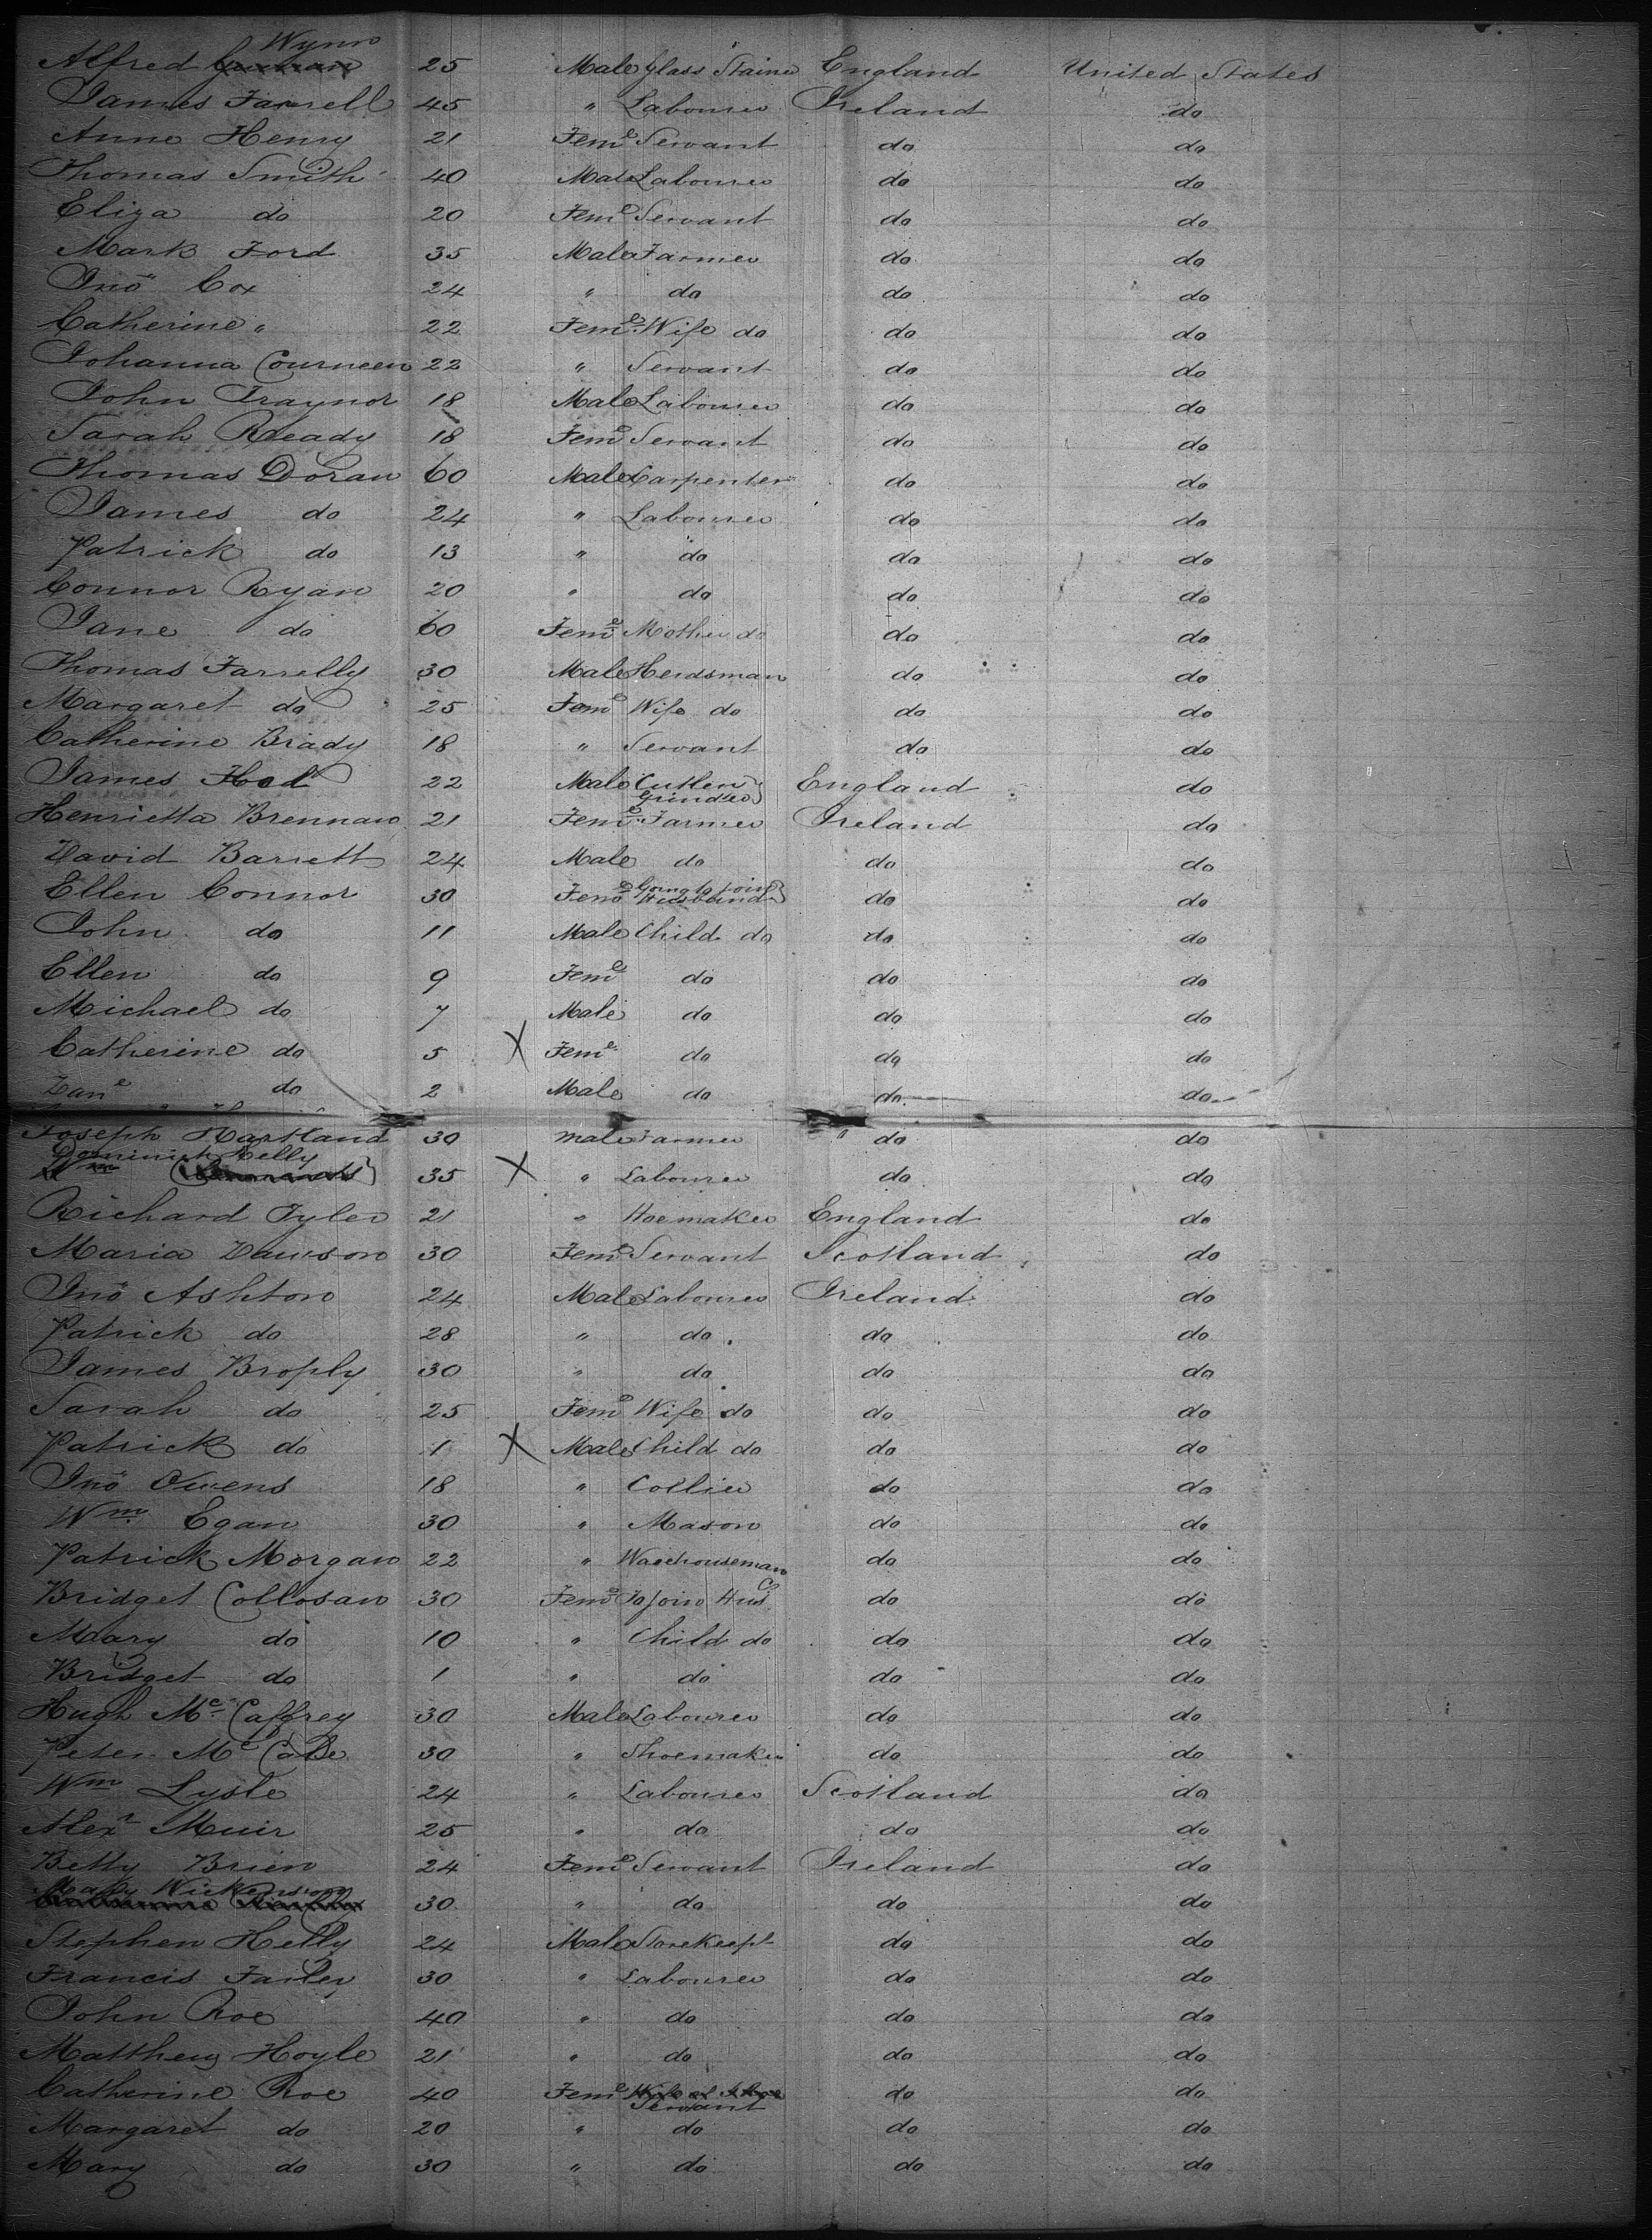 Alfred Wynn 25 Male Glass Stainer England United States
James Farrell 45 " Labourer Ireland do
Anne Henry 21 Feme Servant do do
Thomas Smith 40 Male Labourer do do
Eliza do 20 Feme Servant do do
Mark Ford 35 Male Farmer do do
Jno Cox 24 " do do do
Catherine " 22 Feme Wife do do do
Johanna Courneen 22 " Servant do do
John Traynor 18 Male Labourer do do
Sarah Ready 18 Feme Servant do do
Thomas Doran 60 Male Carpenter do do
James do 24 " Labourer do do
Patrick do 13 " do do do
Connor Ryan 20 " do do do
Jane do 60 Feme Mother do do do
Thomas Farrelly 30 Male Herdsman do do
Margaret do 25 Feme Wife do do do
Catherine Brady 18 " Servant do do
James Hod 22 Male Cutlery Grinder } England do
Henrietta Brennan 21 Feme Farmer Ireland do
David Barrett 24 Male do do do
Ellen Connor 30 Feme Going to join Husband } do do
John do 11 Male Child do do do
Ellen do 9 Feme do do do
Michael do 7 Male do do do
Catherine do 5 X Feme do do do
Danl do 2 Male do do do
Joseph Hartland 30 Male Farmer " do do
Dominick Kelly
Wm 35 X " Labourer do do
Richard Tyler 21 " Hoemaker England do
Maria Dawson 30 Feme Servant Scotland do
Jno Ashton 24 Male Labourer Ireland do
Patrick do 28 " do do do
James Brophy 30 " do do do
Sarah do 25 Feme Wife do do do
Patrick do 1 X Male Child do do do
Jno Owens 18 " Collier do do
Wm Egan 30 " Mason do do
Patrick Morgan 22 " Warehouseman do do
Bridget Collosan 30 Feme To join Husd do do
Mary do 10 " Child do do do
Bridget do 1 " do do do
Hugh Mc Caffrey 30 Male Labourer do do
Peter Mc Cabe 30 " Shoemaker do do
Wm Lysle 24 " Labourer Scotland do
Alexr Muir 25 " do do do
Betty Brien 24 Feme Servant Ireland do
Mary Wickerson
30 " do do do
Stephen Kelly 24 Male Storekeepr do do
Francis Farley 30 " Labourer do do
John Roe 40 " do do do
Matthew Hoyle 21 " do do do
Catherine Roe 40 Feme Wife of above Servant do do
Margaret do 20 " do do do
Mary do 30 " do do do